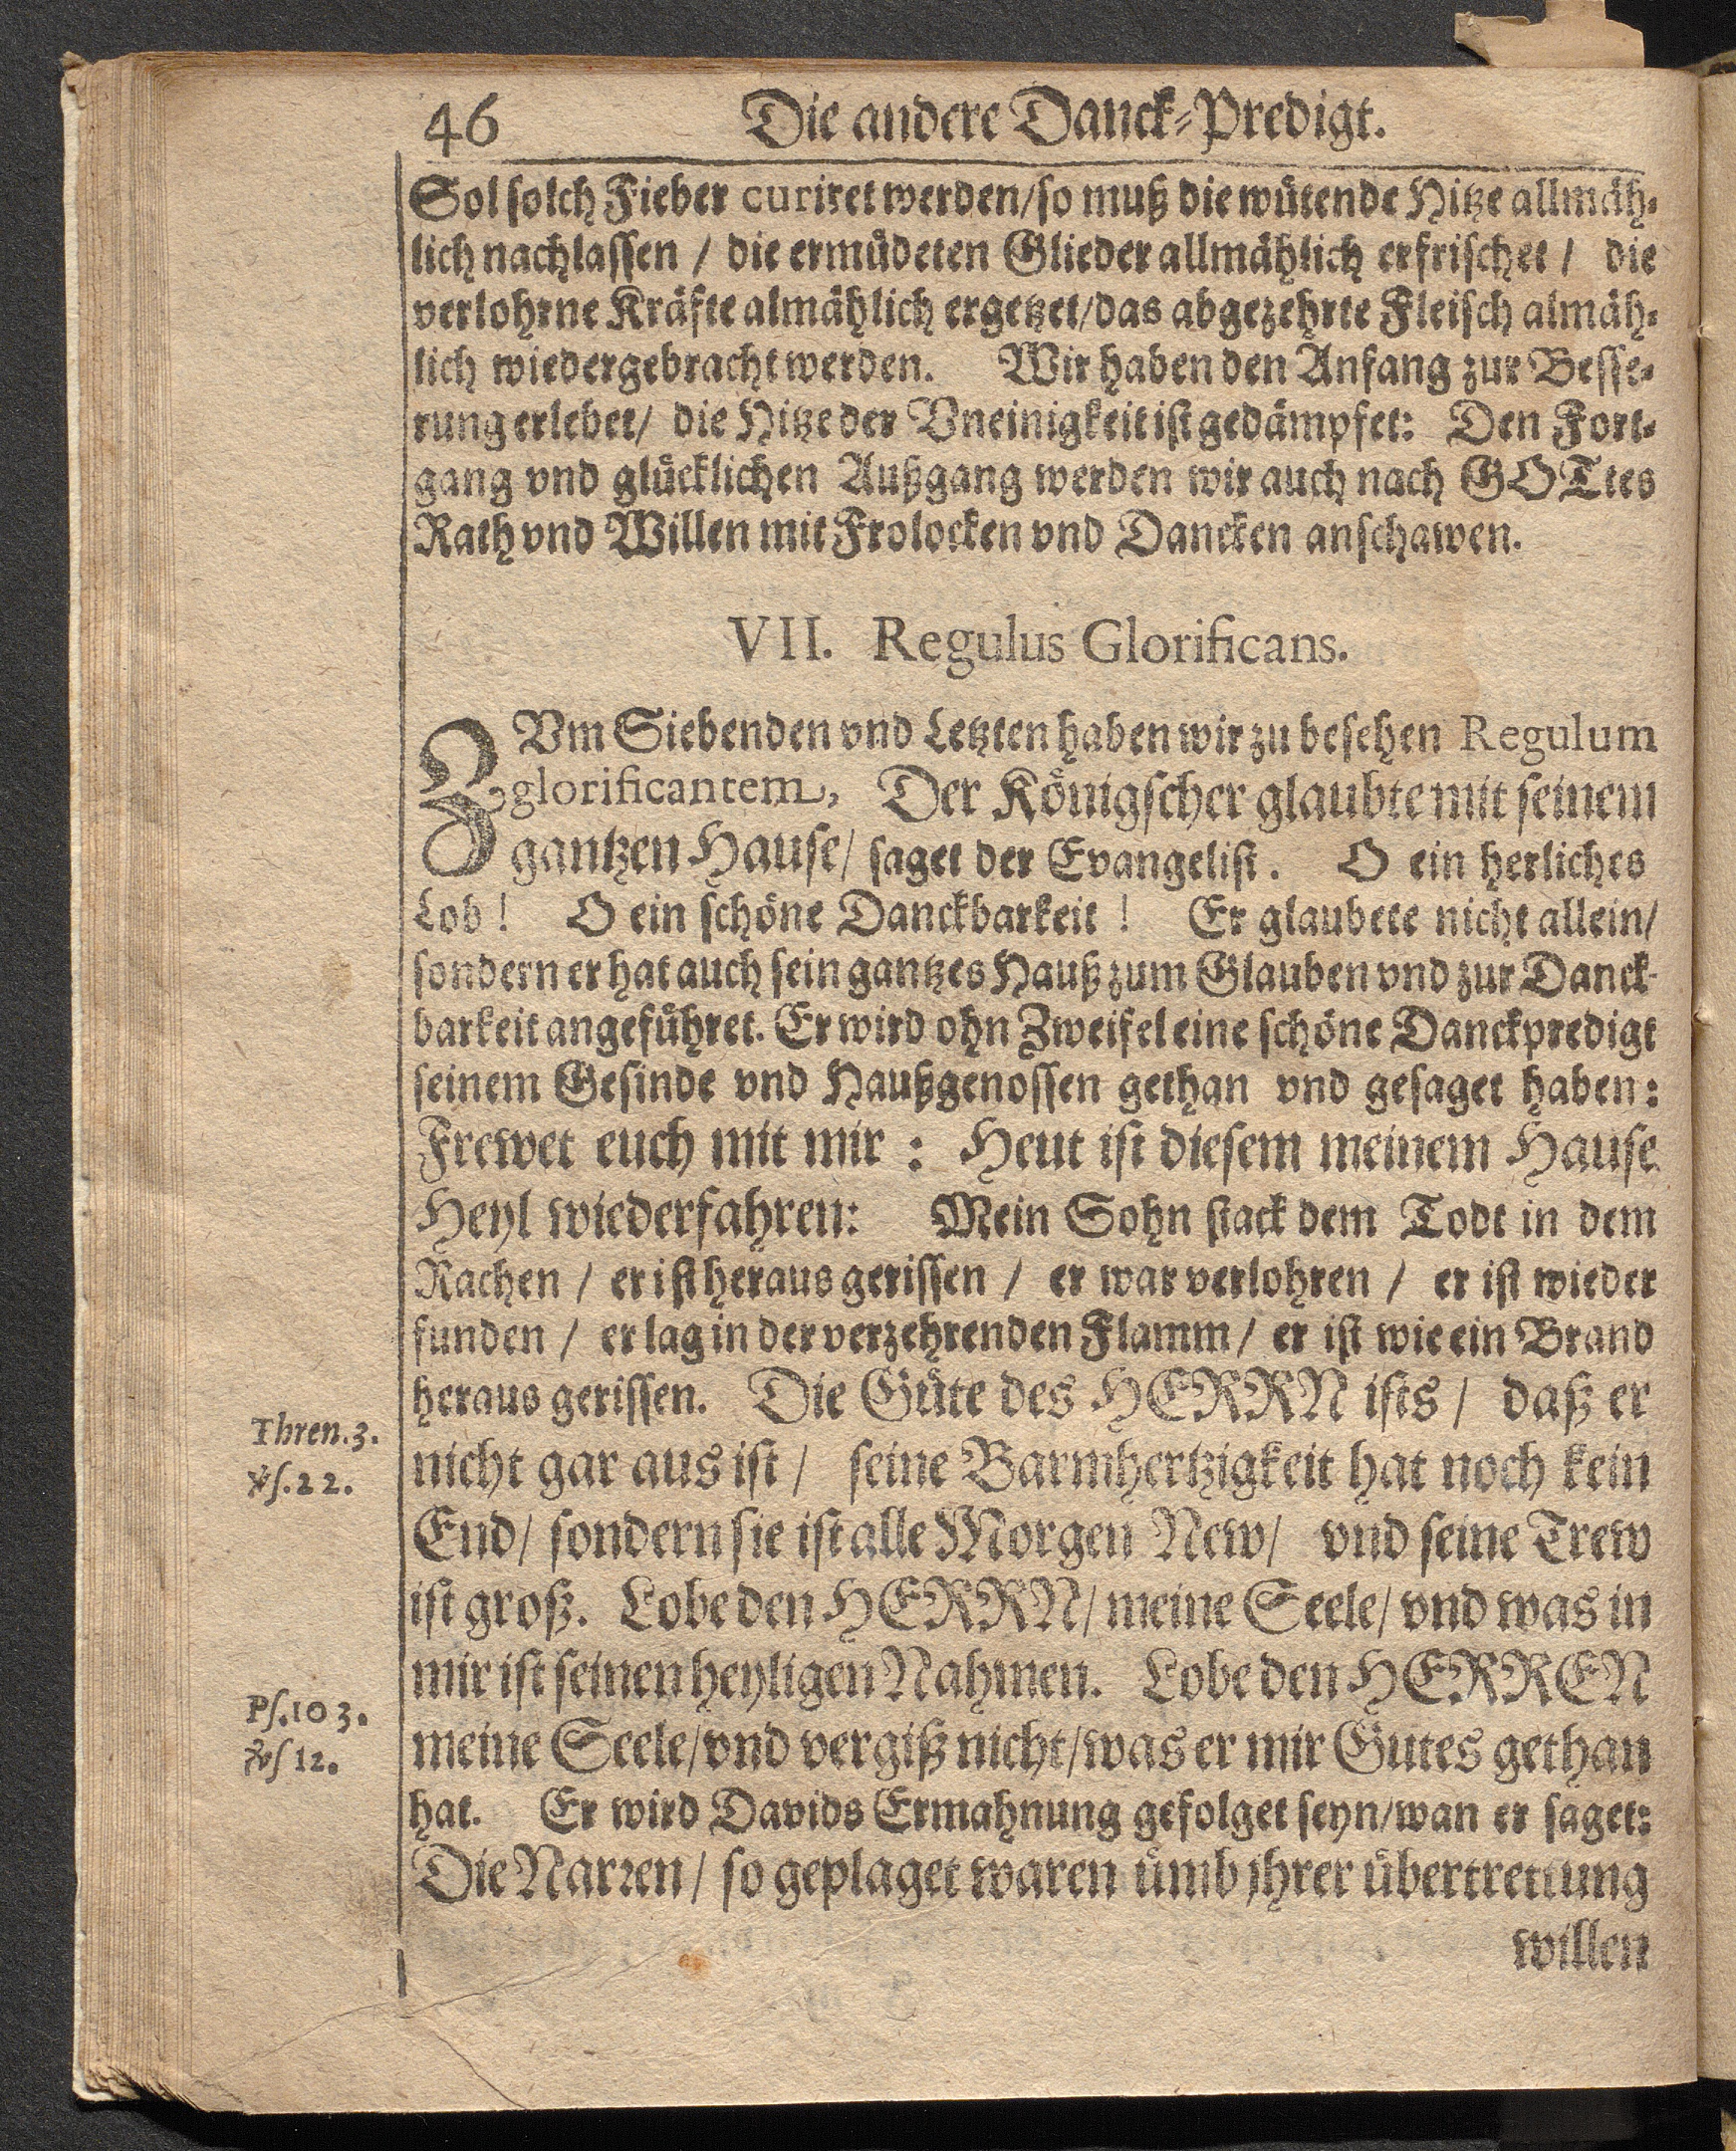 46 Die andere Danck-Predigt.
Sol solch Fieber curiret werden/so muß die wütende Hitze allmäh-
lich nachlassen / die ermüdeten Glieder allmählich erfrischet / die
verlohrne Kräfte almählich ergetzet/das abgezehrte Fleisch almäh-
lich wiedergebracht werden. Wir haben den Anfang zur Besse-
rung erlebet/ die Hitze der Vneinigkeit ist gedämpfet: Den Fort-
gang vnd glücklichen Außgang werden wir auch nach GOTtes
Rath vnd Willen mit Frolocken vnd Dancken anschawen.
VII. Regulus Glorificans.
ZVm Siebenden vnd Letzten haben wir zu besehen Regulum
glorificantem, Der Königscher glaubte mit seinem
gantzen Hause/ saget der Evangelist. O ein herliches
Lob! O ein schöne Danckbarkeit! Er glaubete nicht allein/
sondern er hat auch sein gantzes Hauß zum Glauben vnd zur Danck-
barkeit angeführet. Er wird ohn Zweifel eine schöne Danckpredigt
seinem Gesinde vnd Haußgenossen gethan vnd gesaget haben:
Frewet euch mit mir: Heut ist diesem meinem Hause
Heyl wiederfahren: Mein Sohn stack dem Todt in dem
Rachen / er ist heraus gerissen / er war verlohren / er ist wieder
funden / er lag in der verzehrenden Flamm / er ist wie ein Brand
heraus gerissen. Die Güte des HERRN ists / daß er
Thren.3.
nicht gar aus ist / seine Barmhertzigkeit hat noch kein
vs.22.
End/ sondern sie ist alle Morgen New/ vnd seine Trew
ist groß. Lobe den HERRN/ meine Seele/ vnd was in
mir ist seinen heyligen Nahmen. Lobe den HERREN
Ps.103.
meine Seele/vnd vergiß nicht/was er mir Gutes gethan
vs 12.
hat. Er wird Davids Ermahnung gefolget seyn/wan er saget:
Die Narren/ so geplaget waren ümb jhrer übertrettung
willen